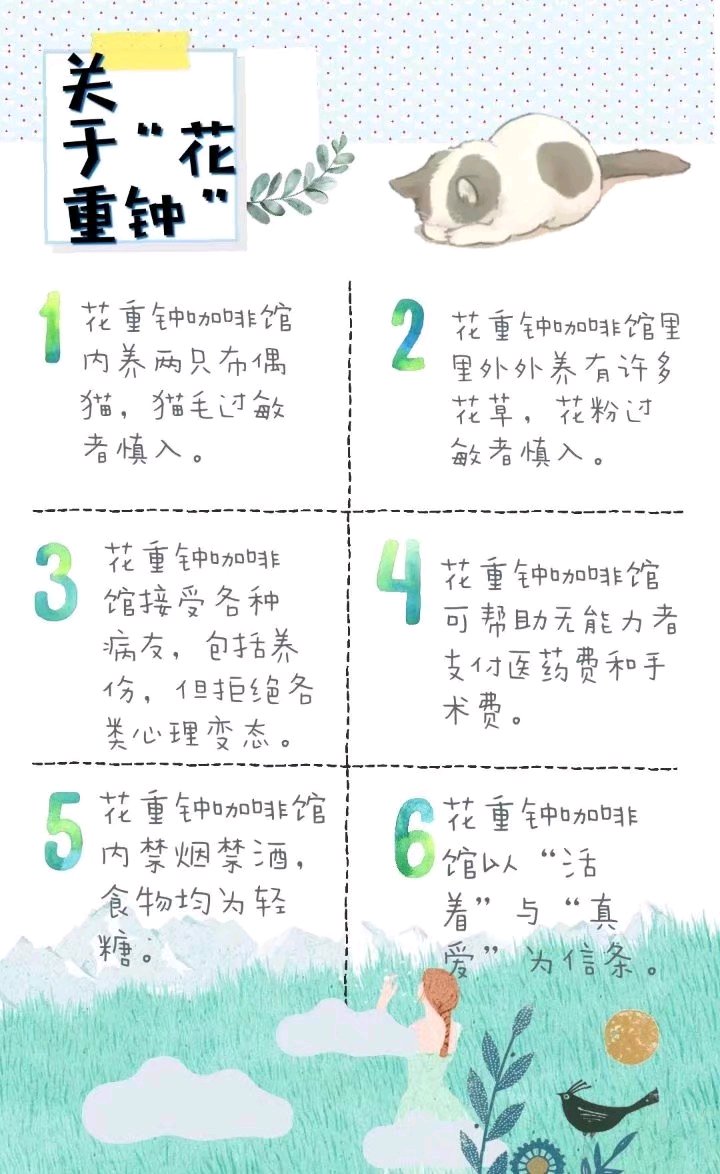 关
于“花
重钟”
1
花重钟咖啡馆
内养两只布偶
猫，猫毛过敏
者慎入。
2
花重钟咖啡馆里
里外外养有许多
花草，花粉过
敏者慎入。
3
花重钟咖啡
馆接受各种
病友，包括养
份，但拒绝各
类心理变态。
4
花重钟咖啡馆
可帮助无能力者
支付医药费和手
术费。
5
花重钟咖啡馆
内禁烟禁酒，
食物均为轻
糖。
6
花重钟咖啡
馆以“活
着”与“真
爱”为信条。